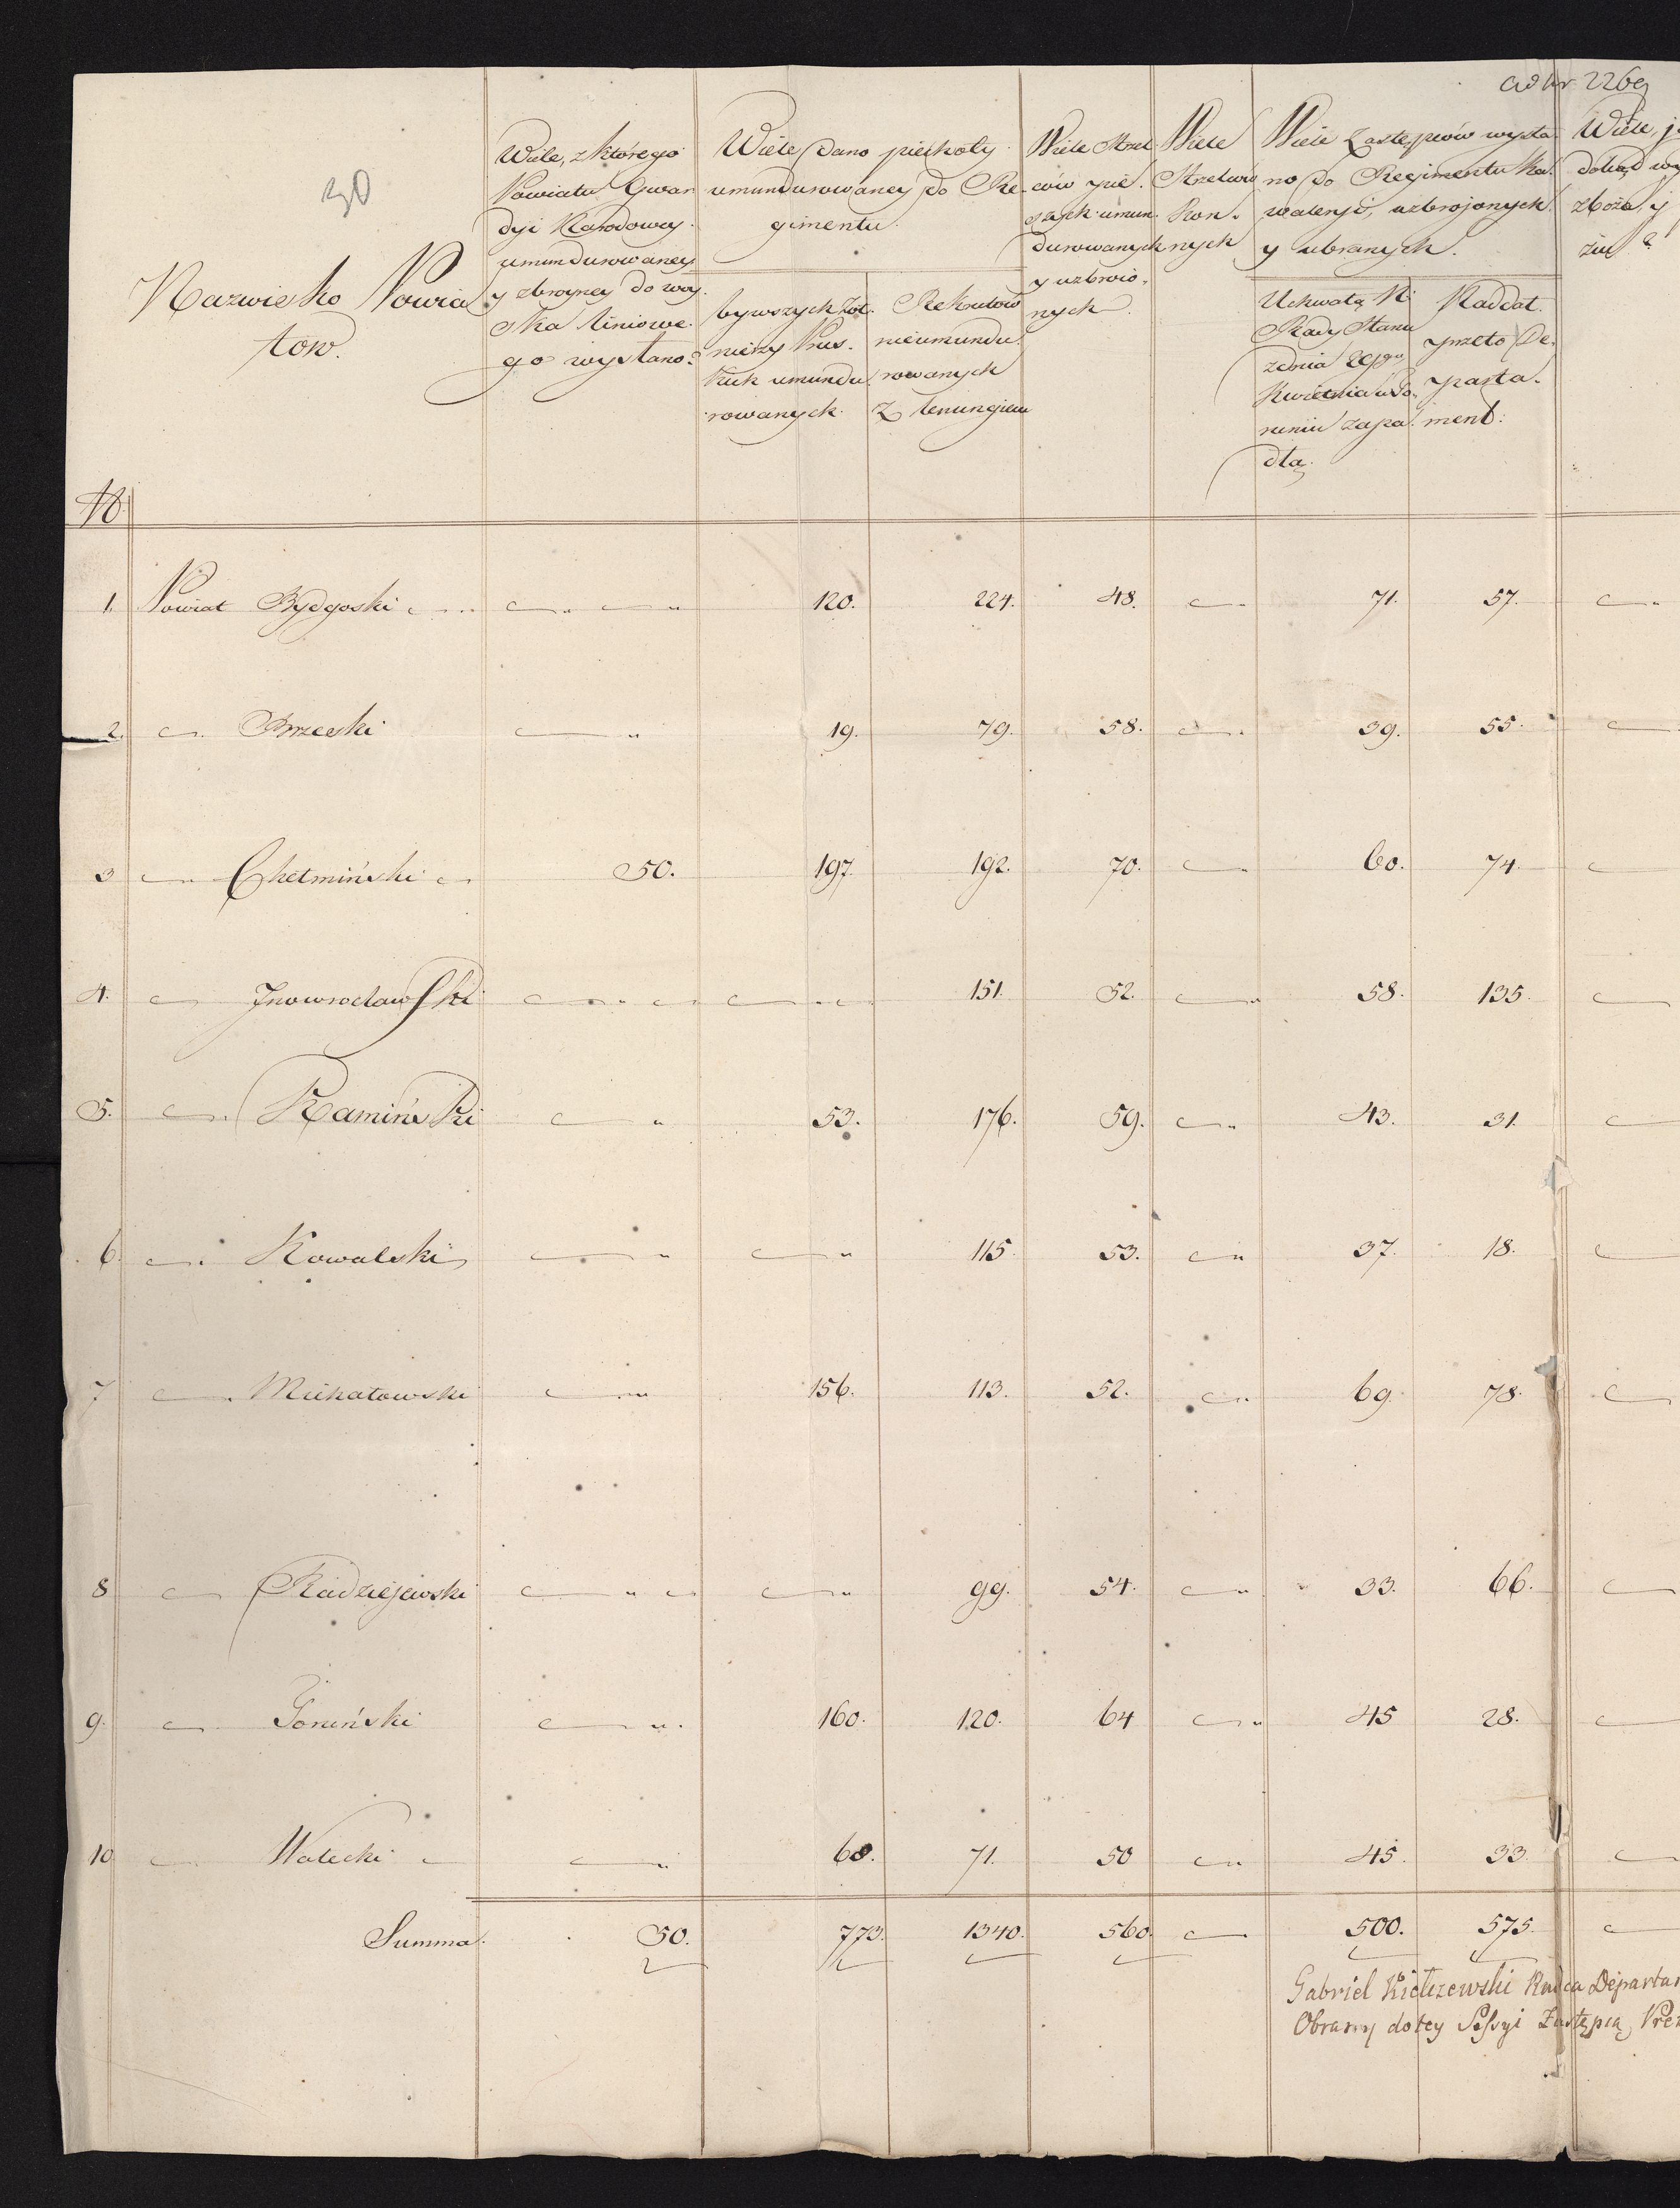 ad Nr 2269
30
Nazwisko Powia
tow.
Wiele, z którego
Powiatu Gwar
dyi Narodowey
umundurowaney
y zbroyney do woy
ska liniowe
go wystano?
Wiele dano piechoty
umundurowaney do Re-
gimentu.
bywszych Żoł.
nierzy Prus.
kich umundu
rowanych
Rekrutow
nieumundu
rowanych
z lenungiem
Wiele Strzel
ców pie.
szych umun.
durowanych
y uzbroio.
nych
Wiele
Strzelców
Kon.
nych
Wiele Zastępców wysta
no do Regimentu Ka.
waleryi, uzbrojonych
y ubranych.
Uchwałą N.
Rady Stanu
z dnia 29go
Kwietnia w To.
runiu zapa.
dłą.
Naddat.
przeto De.
parta.
ment:
Wiele, j
dokąd wy
zboża y
ziu ?
N
1. Powiat Bydgoski 120. 224. 48. 71. 57.
2. Brzeski 19. 79. 58. 39. 55.
3 Chełmiński 50. 197 192. 70. 60. 74.
4. Jnowrocławski 151. 52. 58. 135.
5. Kamiński 53. 176. 59. 43. 31.
6. Kowalski 115. 53. 37. 18.
7 Michałowski 156. 113. 52. 69. 78.
8 Radziejewski 99. 54. 33. 66.
9. Toruński 160. 120. 64 45 28.
10 Wałecki 68. 71. 50 45. 33.
Summa. 50. 773. 1340. 560. 500. 575.
Gabriel Kiełczewski Radca Departa
Obrany do tey Sessyi Zastępcą Prez